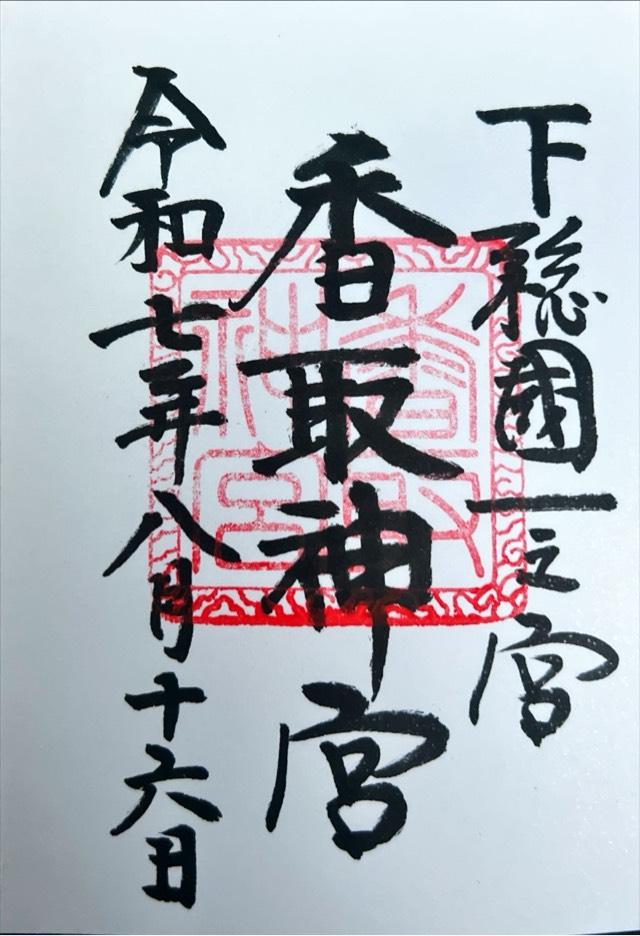 下総國一之宮
香取神宮
令和七年八月十六日
香取神宮